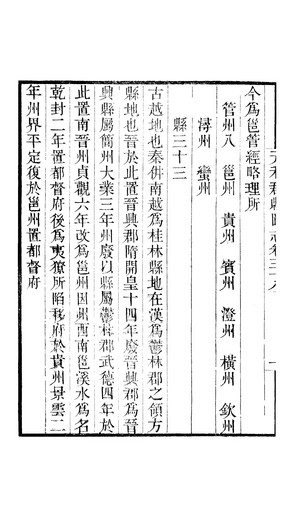 今為邕管經略理所
管州八　邕州　貴州　賓州　澄州　橫州　欽州
潯州　蠻州
縣三十三
古越地也秦併南越為桂林縣地在漢為鬱林郡之領方
縣地也晉於此置晉興郡隋開皇十四年廢晉興郡為晉
興縣屬簡州大業三年州廢以縣屬鬱林郡武德四年於
此置南晉州貞觀六年改為邕州因州西南邕溪水為名
乾封二年置都督府後為夷獠所陷移府於貴州景雲二
年州界平定復於邕州置都督府